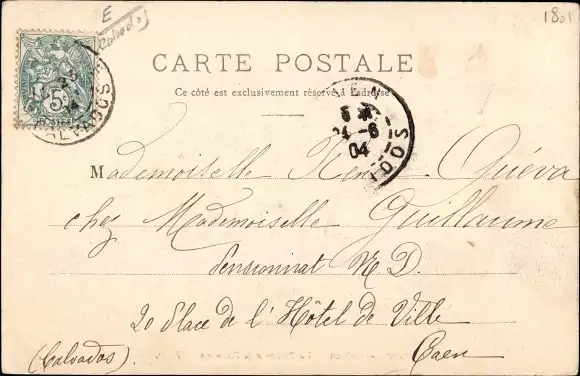 E
Calvados
1801
5
POSTES
CALVADOS
CARTE POSTALE
Ce côté est exclusivement réservé à l'adresse
CAEN
24 -6
04
Mademoiselle Quéva
chez Mademoiselle Guillaume
Pensionnat N. D.
20 Place de l'Hôtel de Ville
(Calvados). Caen